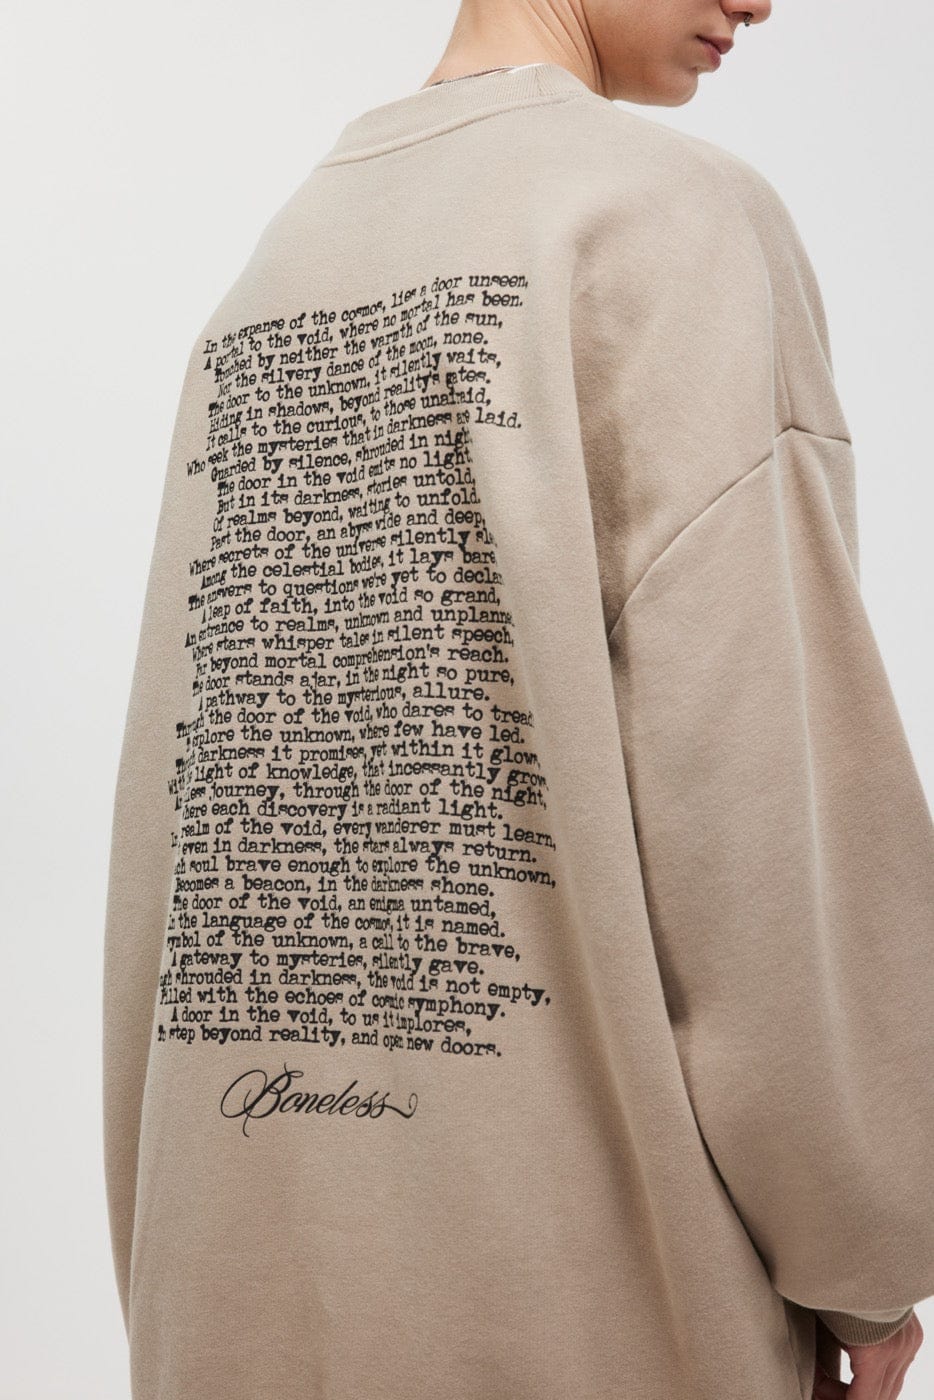 In the expanse of the cosmos, lies a door unseen,
A portal to the void, where no mortal has been.
Touched by neither the warmth of the sun,
Nor the silvery dance of the moon, none.
The door to the unknown, it silently waits,
Hiding in shadows, beyond reality's gates.
It calls to the curious, to those unafraid,
Who seek the mysteries that in darkness are laid.
Guarded by silence, shrouded in night.
The door in the void emits no light.
But in its darkness, stories untold,
Of realms beyond, waiting to unfold.
Past the door, an abyss wide and deep,
Where secrets of the universe silently
Among the celestial bodies, it lays bare
The answers to questions we're yet to
A leap of faith, into the void so grand,
An entrance to realms, unknown and
Where stars whisper tales in silent speech,
Far beyond mortal comprehension's reach.
The door stands ajar, in the night so pure,
A pathway to the mysterious, allure.
Through the door of the void, who dares to tread
Explore the unknown, where few have led.
darkness it promises, yet within it glows,
light of knowledge, that incessantly
journey, through the door of the night,
here each discovery is a radiant light.
realm of the void, every wanderer must learn,
even in darkness, the stars always return.
soul brave enough to explore the unknown,
Becomes a beacon, in the darkness shone.
The door of the void, an enigma untamed,
In the language of the cosmos, it is named.
symbol of the unknown, a call to the brave,
A gateway to mysteries, silently gave.
shrouded in darkness, the void is not empty,
Filled with the echoes of cosmic symphony.
A door in the void, to us it implores,
To step beyond reality, and open new doors.
Boneless